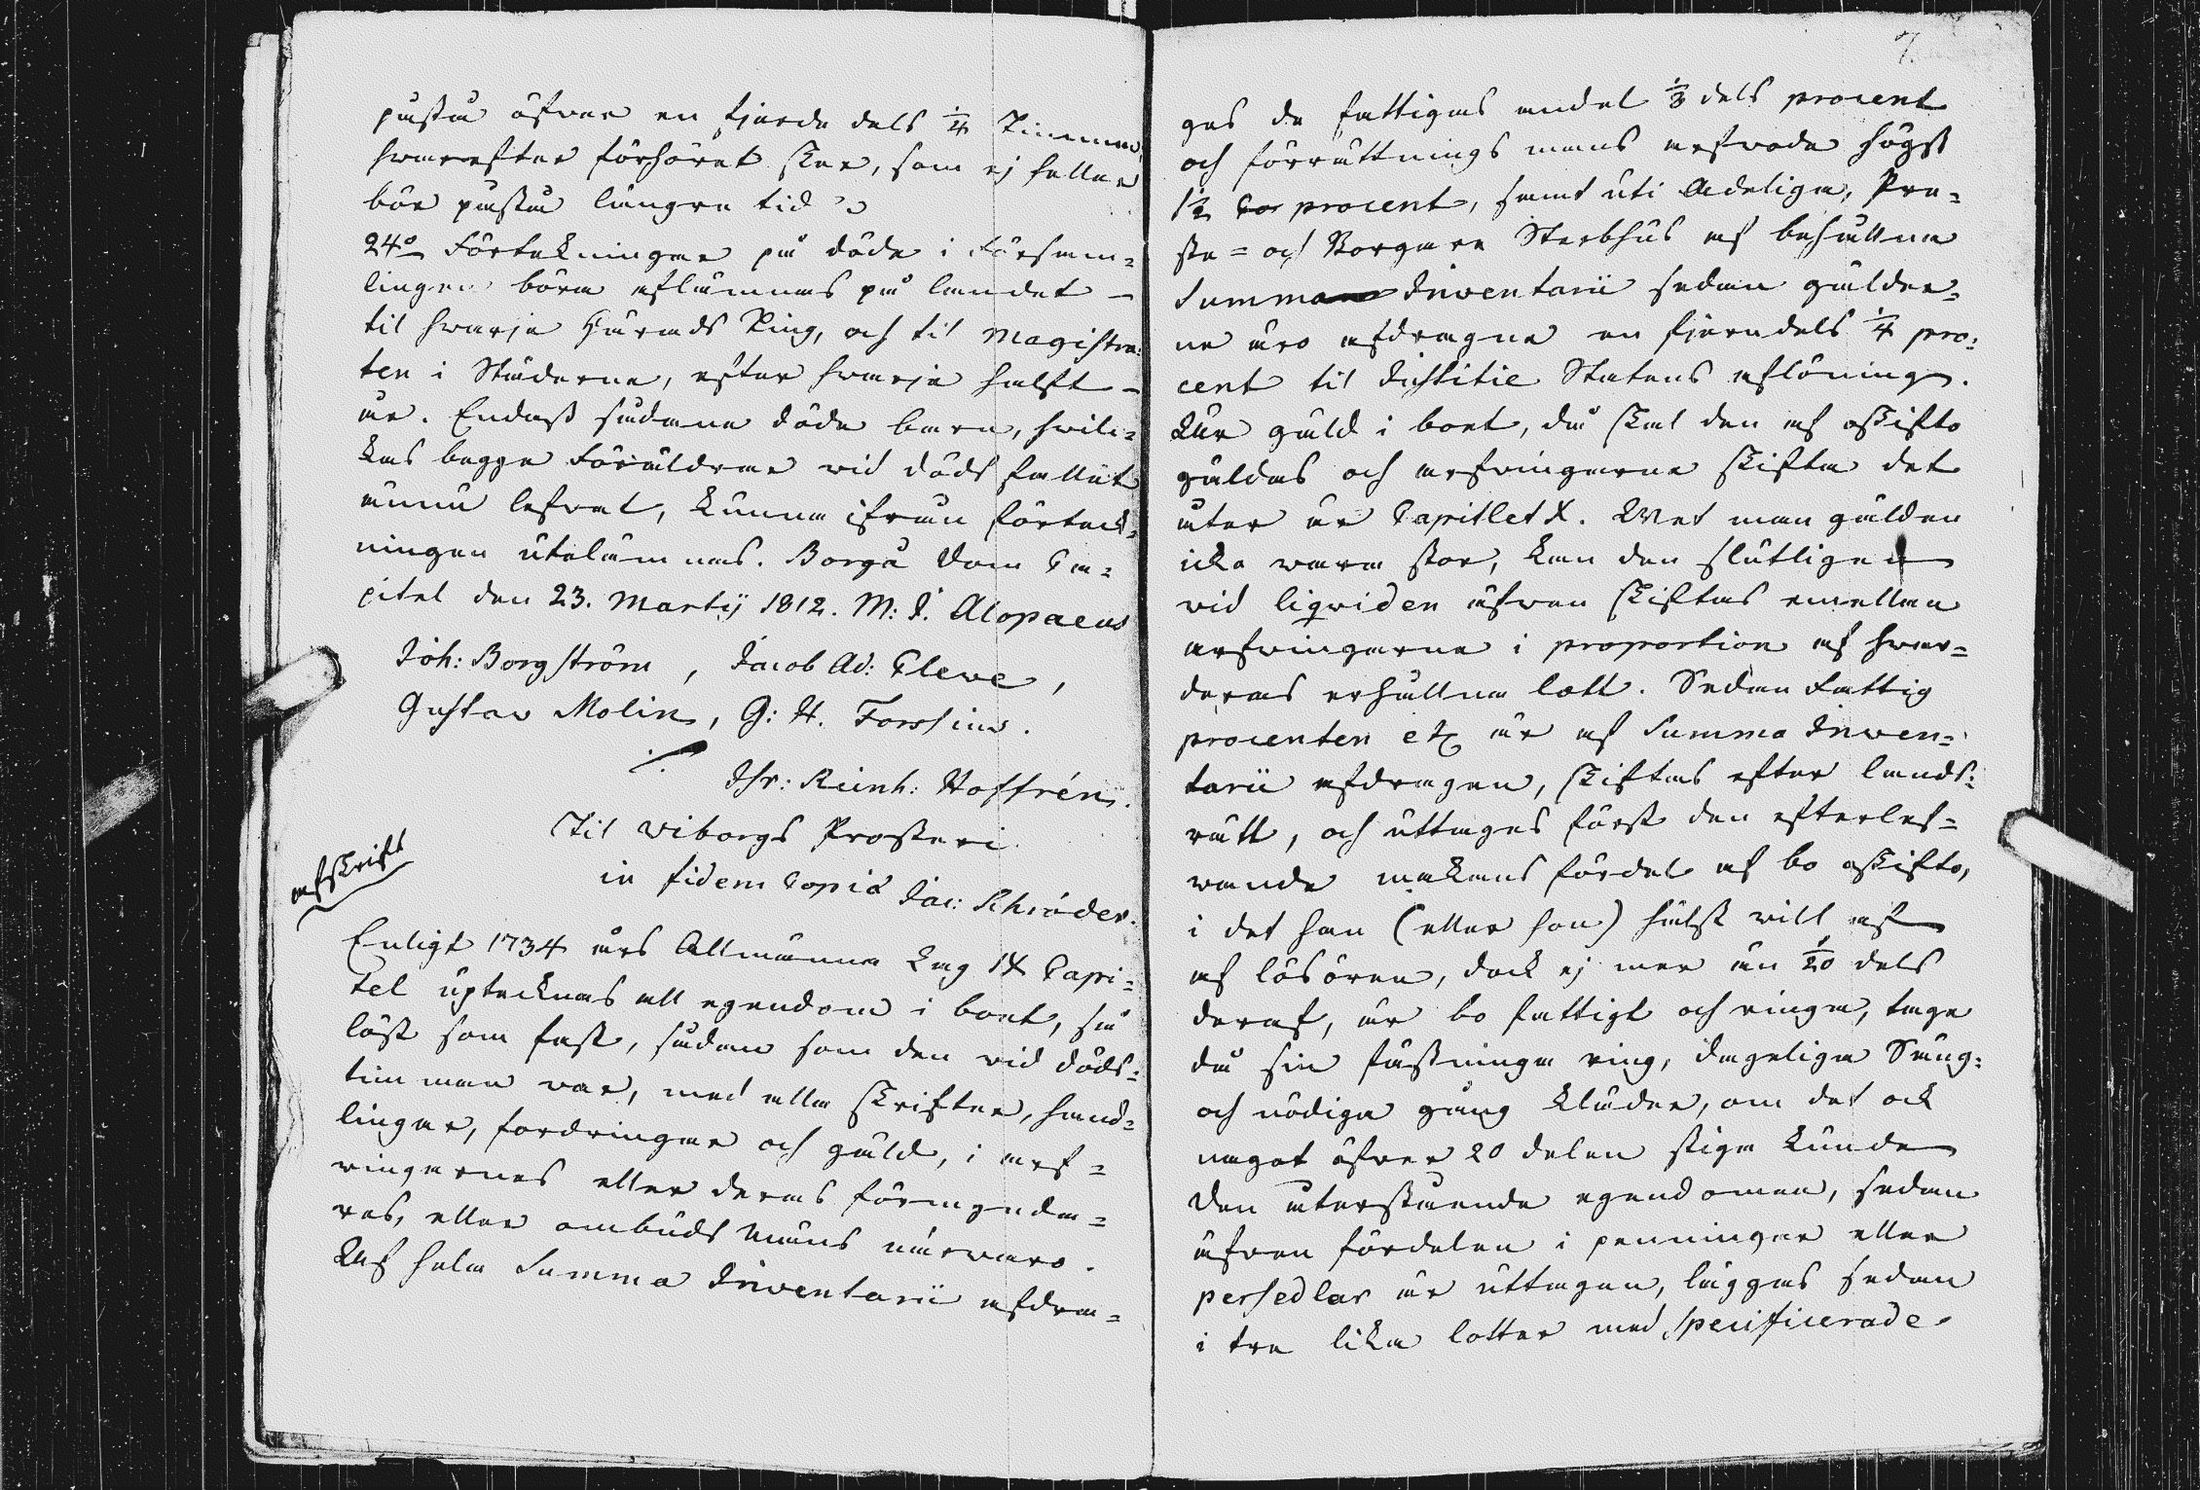 påstå öfver en fjerde dels 1/4 Timma,
hvarefter förhöret sker, som ej heller
bör påstå längre tid
24o Förtekningar på döde i Försam=
lingen böra aflämnas på landet –
til hvarje Härads Ting, och til Magistra=
ten i Städerne, efter hvarje halft –
år. Endast sådane döde barn, hvil=
kas begge Föräldrar vid dödsfallet
ännu lefvat, kunna ifrån förtek=
ningen utelämnas. Borgå Dom Ca=
pitel den 23. Martij 1812. M: J. Alopaeus
Joh: Borgström, Jacob Ad: Cleve,
Gustav Molin, G: H. Forssius.
Chr: Reinh: Hoffrén.
Til Viborgs Prosteri
in fidem Copiæ Jac: Schröder.
afskrift
Enligt 1734 års Allmänna Lag IX Capi=
tel uptecknas all egendom i boet, så
löst som fast, sådan som den vid döds=
timman var, med alla skrifter, hand=
lingar, fordringar och gäld, i arf=
vingarnes eller deras förmynda=
res, eller ombudsmäns närvaro.
Af hela Summa Inventarii afdra=
7.
gas de fattigas andel 1/8 dels procent
och förrättnings mans arfvode högst
1 1/2 procent, samt uti Adeliga, Pre=
ste= och Borgare Sterbhus af behållna
Summa Inventarii sedan gälder=
ne äro afdragne en fjerndels 1/4 pro=
cent til Justitie Statens aflöning.
Är gäld i boet, då skal den af oskifto
gäldas och arfvingarne skifta det
åter är Capitlet X. Vet man gälden
icke vara stor, kan den slutligen
vid liqviden äfven skiftas emellan
arfvingarne i proportion af hvar=
deras erhållna lott. Sedan Fattig
procenten etc är af Summa Inven=
tarii afdragen, skiftas efter lands=
rätt, och uttages först den efterlef=
vande makans fördel af bo oskifto,
i det han (eller hon) hälst vill af
af lösören, dock ej mer än 1/20 dels
deraf, är bo fattigt och ringa, tage
då sin fästninga ring, dageliga Säng=
och nödiga gång kläder, om det ock
något öfver 20 delen stiga kunde
Den återstående egendomen, sedan
äfven fördelen i penningar eller
persedlar är uttagen, lägges sedan
i tre lika lotter med specificerade